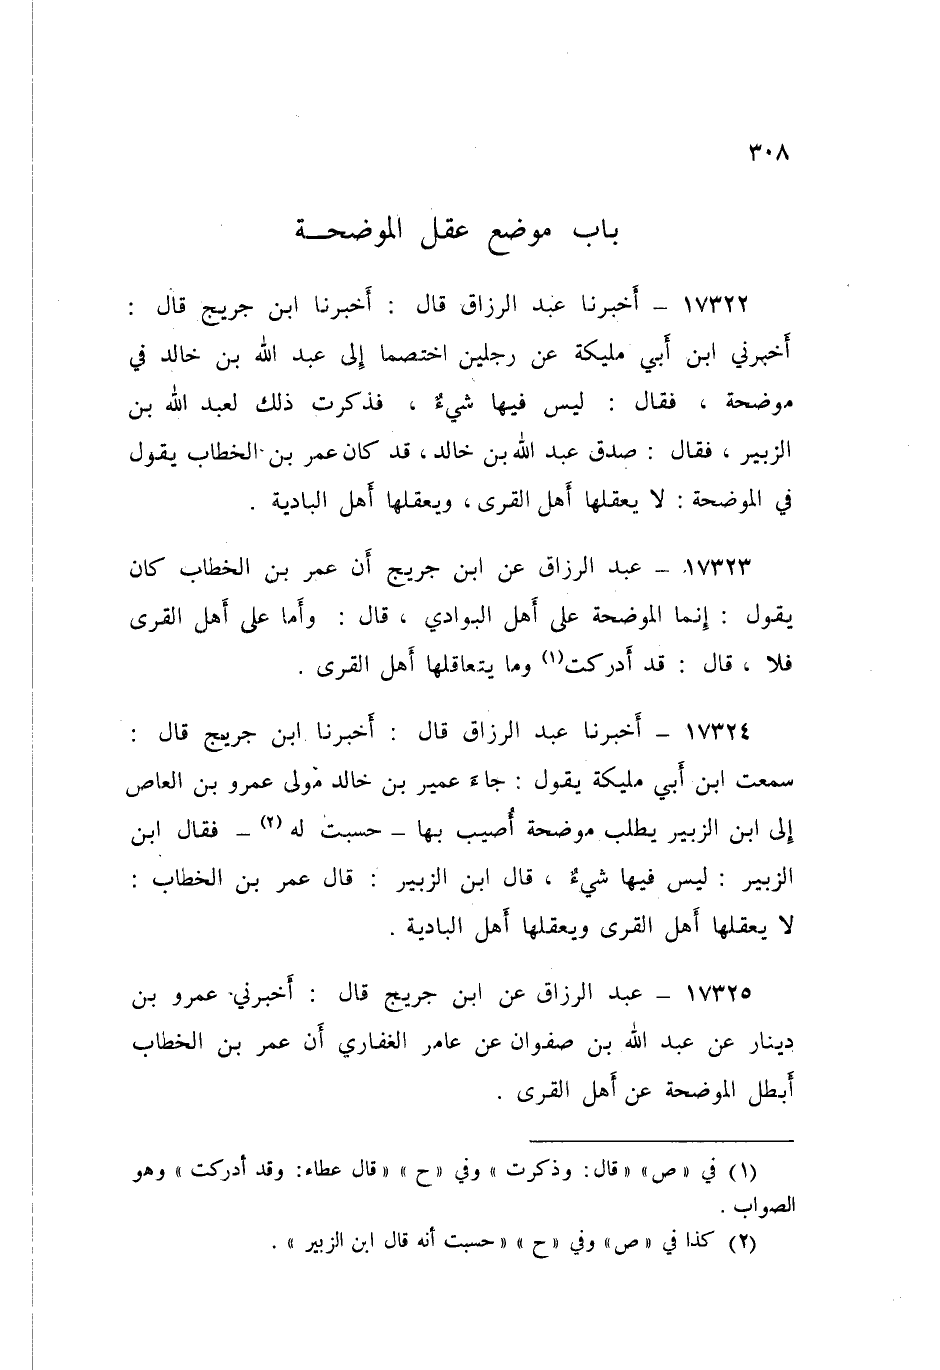 ٣٠٨
باب موضع عقل الموضحـــة
١٧٣٢٢ - أخبرنا عبد الرزاق قال : أخبرنا ابن جريج قال :
أخبرني ابن أبي مليكة عن رجلين اختصما إلى عبد الله بن خالد في
موضحة ، فقال : ليس فيها شيءٌ ، فذكرت ذلك لعبد الله بن
الزبير ، فقال : صدق عبد الله بن خالد ، قد كان عمر بن الخطاب يقول
في الموضحة : لا يعقلها أهل القرى ، ويعقلها أهل البادية .
١٧٣٢٣ - عبد الرزاق عن ابن جريج أن عمر بن الخطاب كان
يقول : إنما الموضحة على أهل البوادي ، قال : وأما على أهل القرى
فلا ، قال : قد أدركت(١) وما يتعاقلها أهل القرى .
١٧٣٢٤ - أخبرنا عبد الرزاق قال : أخبرنا ابن جريج قال :
سمعت ابن أبي مليكة يقول : جاءَ عمير بن خالد مَولى عمرو بن العاص
إلى ابن الزبير يطلب موضحة أُصيب بها - حسبت له (٢) - فقال ابن
الزبير : ليس فيها شيءٌ ، قال ابن الزبير : قال عمر بن الخطاب :
لا يعقلها أهل القرى ويعقلها أهل البادية .
١٧٣٢٥ - عبد الرزاق عن ابن جريج قال : أخبرني عمرو بن
دينار عن عبد الله بن صفوان عن عامر الغفاري أن عمر بن الخطاب
أبطل الموضحة عن أهل القرى .
(١) في « ص » « قال : وذكرت » وفي « ح » « قال عطاء : وقد أدركت » وهو
الصواب .
(٢) كذا في « ص » وفي « ح » « حسبت أنه قال ابن الزبير » .